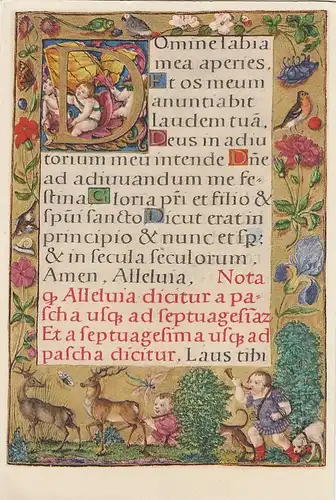 Domine labia
mea aperies.
Et os meum
anuntiabit
laudem tuã.
Deus in adiu
torium meũ intende Dñe
ad adiuuandum me fe-
stina Gloria pr̃i et filio &
spũi sancto Dicut erat in
principio & nunc et sp̃:
& in secula seculorum.
Amen, Alleluia. Nota
q Alleluia dicitur a pa-
scha usq ad septuagesiaz
Et a septuagesima usq ad
pascha dicitur. Laus tibi